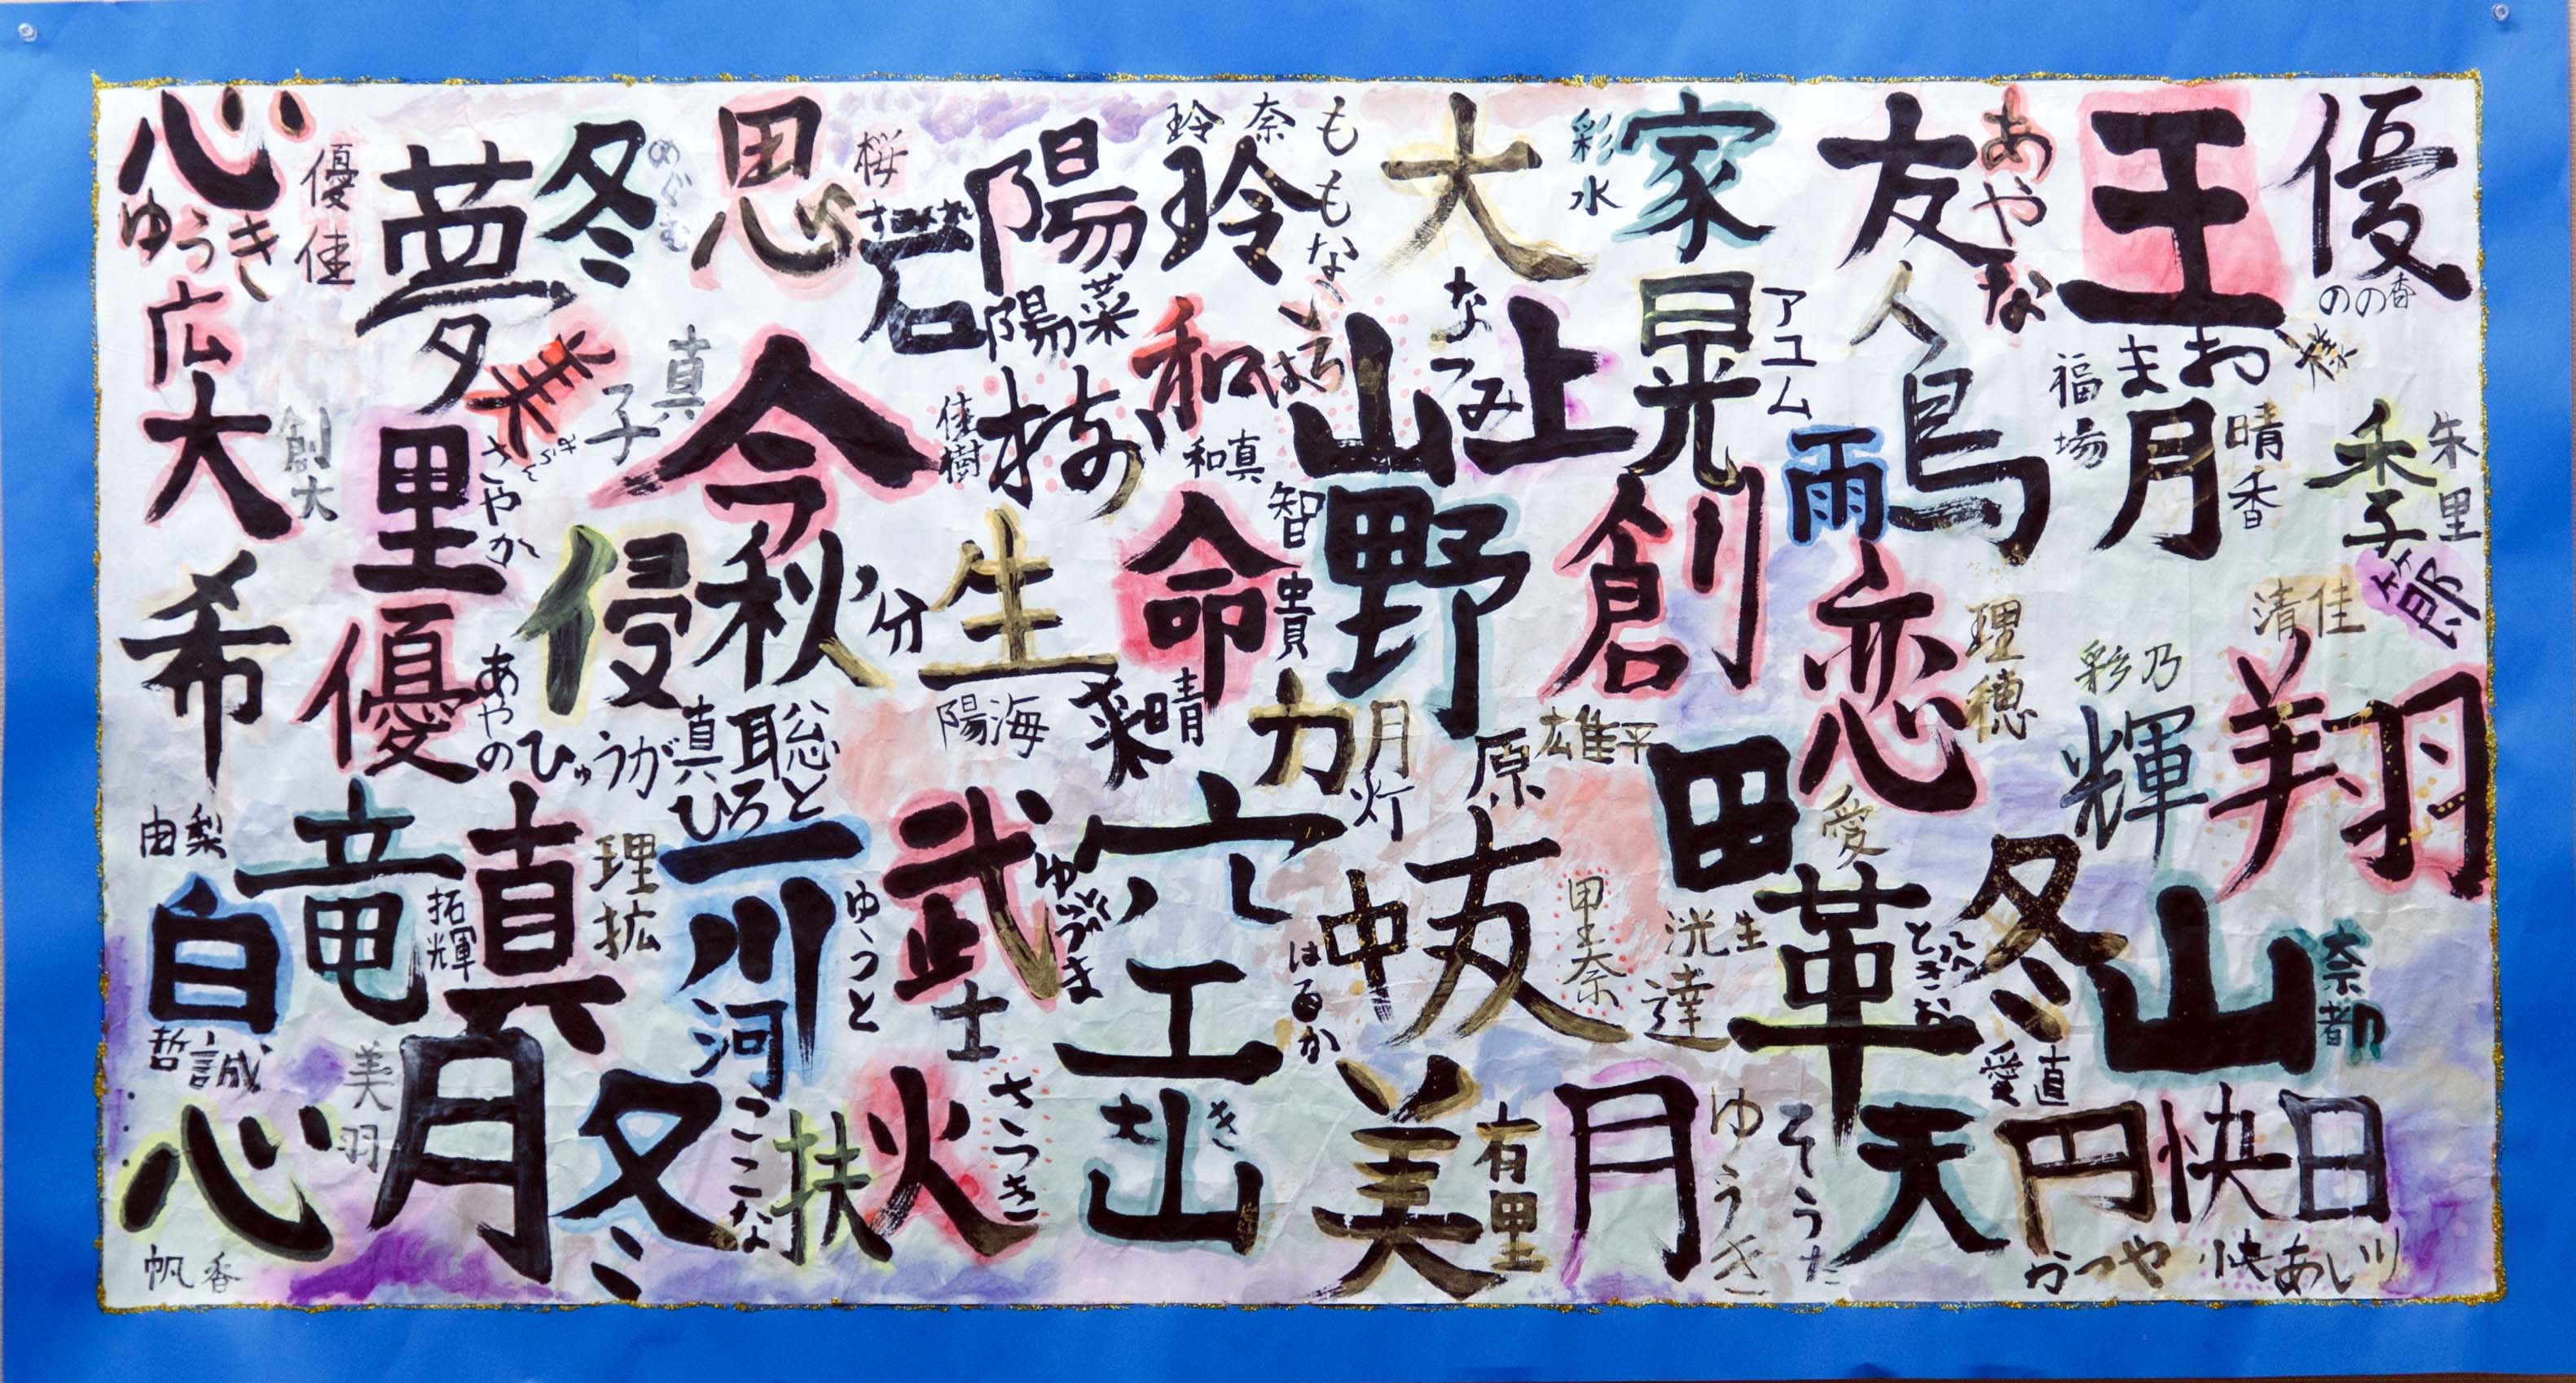 優
のの香
王
まお
あやな
友
人
家
彩水
大
もも
もな
玲奈
玲
陽
陽菜
桜
思
岩
冬
めぐむ
夢
優佳
心
ゆうき
朱里
季
節
晴香
月
福場
鳥
雨
アユム
晃
止
なつみ
山
和
和真
佳樹
今
真子
美
さやか
里
創大
広
大
清佳
翔
彩乃
輝
理穂
恋
愛
創
野
智貴
命
晴菜
生
陽海
分
秋
侵
聡真
ひろと
ひゅうが
優
あやの
希
由梨
雄平
原
力
月灯
田
奈都
山
冬
革
洸生
達
里奈
友
中
はるか
空
武士
ゆうと
一
川
河
理拡
真
拓輝
竜
白
哲誠
日
快
快あいり
円
かつや
愛直
天
そうた
ゆうき
月
有里
美
山
大き
さつき
火
扶
ここな
冬
月
美羽
心
帆香